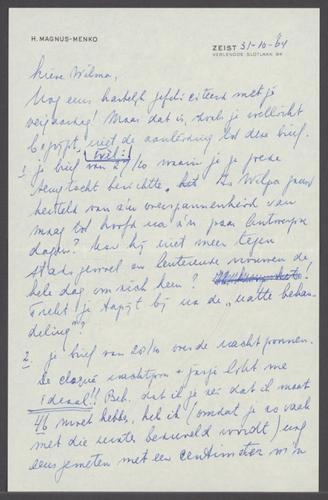 H. MAGNUS-MENKO
ZEIST 31-10-'64
VERLENGDE SLOTLAAN
Lieve Wilma,
Nog eens hartelijk gefeliciteerd met je
verjaardag! Maar dat is, zoals je wellicht
begrijpt, niet de aanleiding tot deze brief.
wel:
1. je brief van /10 waarin je je
berichtte, het. Is Wolga goed
hersteld van z'n overspannenheid van
maag tot hoofd na z'n paar Antwerpse
dagen? Kan hij niet meer tegen
stads gewoel en vrouwen de
hele dag om zich heen?
Trekt je Hapje bij na de "natte behan-
deling"?
2. je brief van 20/10 over de nachtponnen.
De nachtpon + lijkt me
ideaal!! Beb. dat ik je zei dat ik maat
46 moet hebben, heb ik (omdat je zo vaak
met die maten wordt) nog
eens gemeten met een centimeter m'n